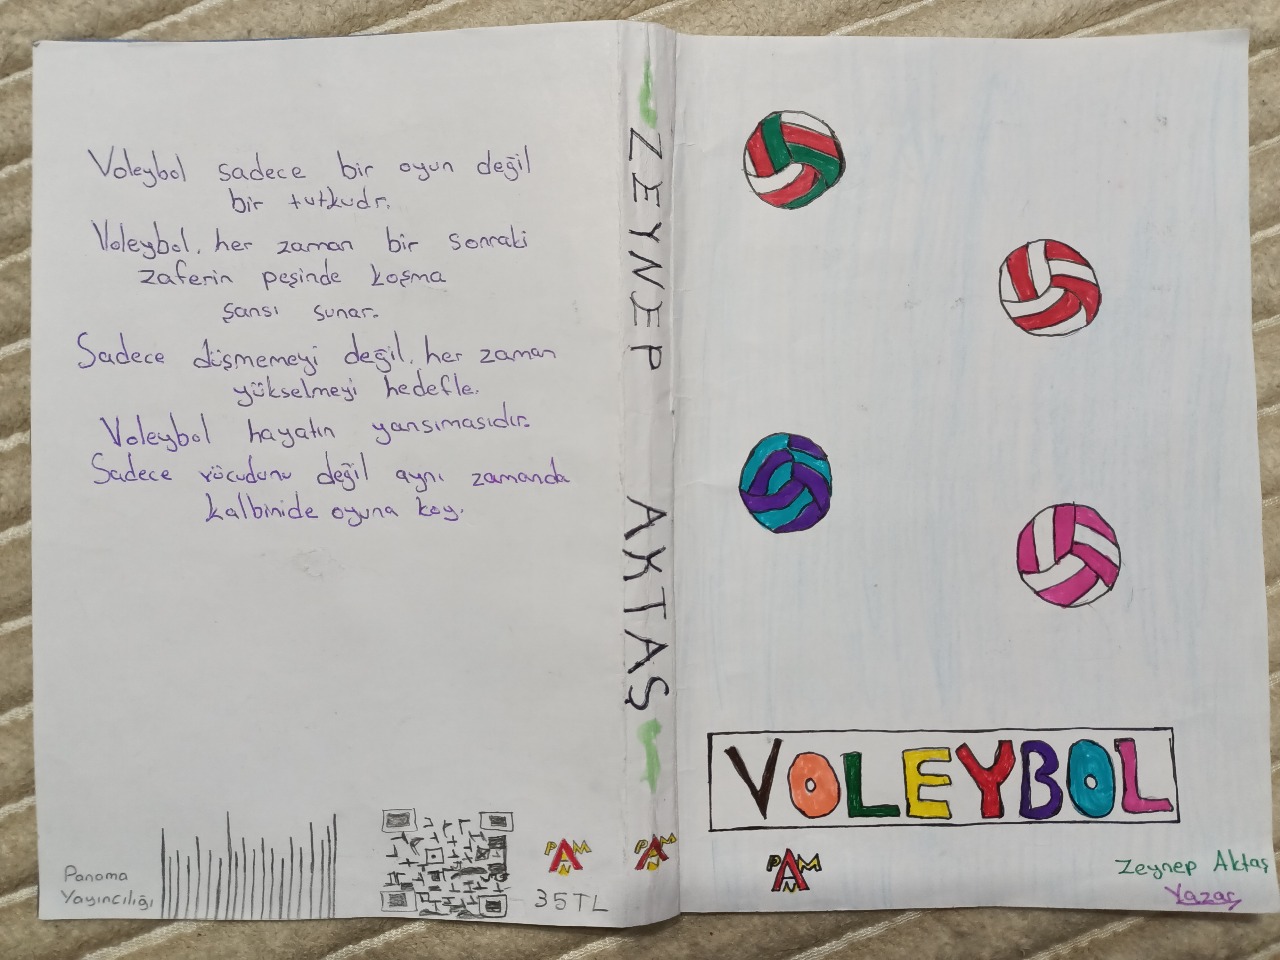 Voleybol sadece bir oyun değil
bir tutkudr.
Voleybol, her zaman bir sonraki
zaferin peşinde koşma
şansı sunar.
Sadece düşmemeyi değil, her zaman
yükselmeyi hedefle.
Voleybol hayatın yansımasıdır.
Sadece vücudunu değil aynı zamanda
kalbinide oyuna koy.
Panoma
Yayıncılığı
PAMN
35TL
ZEYNEP AKTAŞ
PAMN
VOLEYBOL
PAMN
Zeynep Aktaş
Yazar